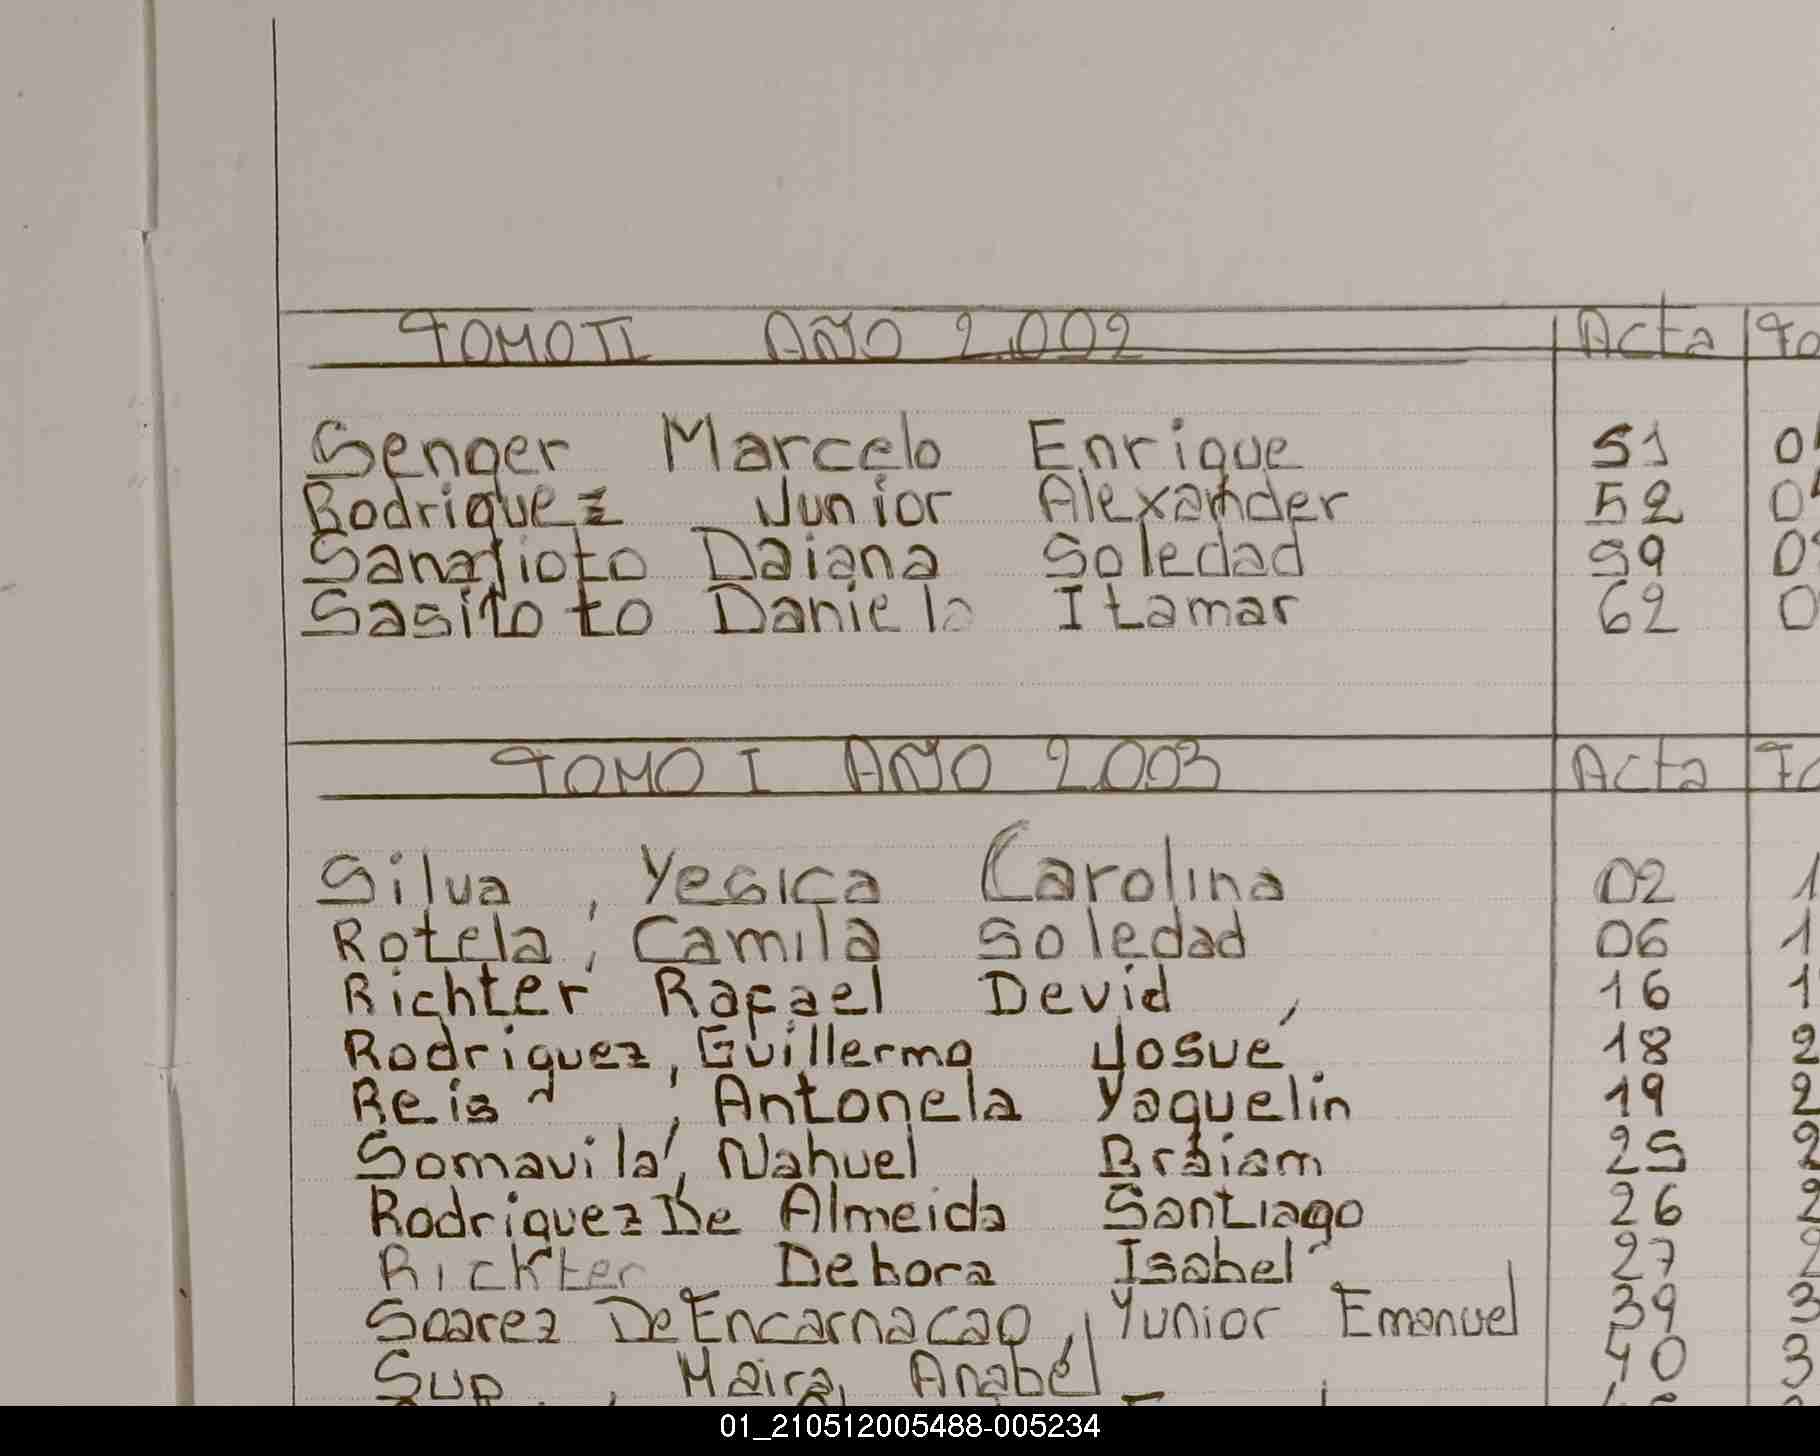 TOMO II AÑO 2.002 Acta Fo
Senger Marcelo Enrique 51 0
Rodriguez Junior Alexander 52 0
Daiana Soledad 59 0
Daniela Itamar 62 0
TOMO I AÑO 2.003 Acta Fo
Silva, Yesica Carolina 02 1
Rotela, Camila Soledad 06 1
Richter Rafael Devid, 16 1
Rodriguez, Guillermo Josue 18 2
Reis, Antonela Yaquelin 19 2
Somavila, Nahuel Braiam 25 2
Rodriguez De Almeida Santiago 26 2
Rickter Debora Isabel 27 2
Soarez De Encarnacao, Yunior Emanuel 39 3
Maira Anabel 40 3
01_210512005488-005234